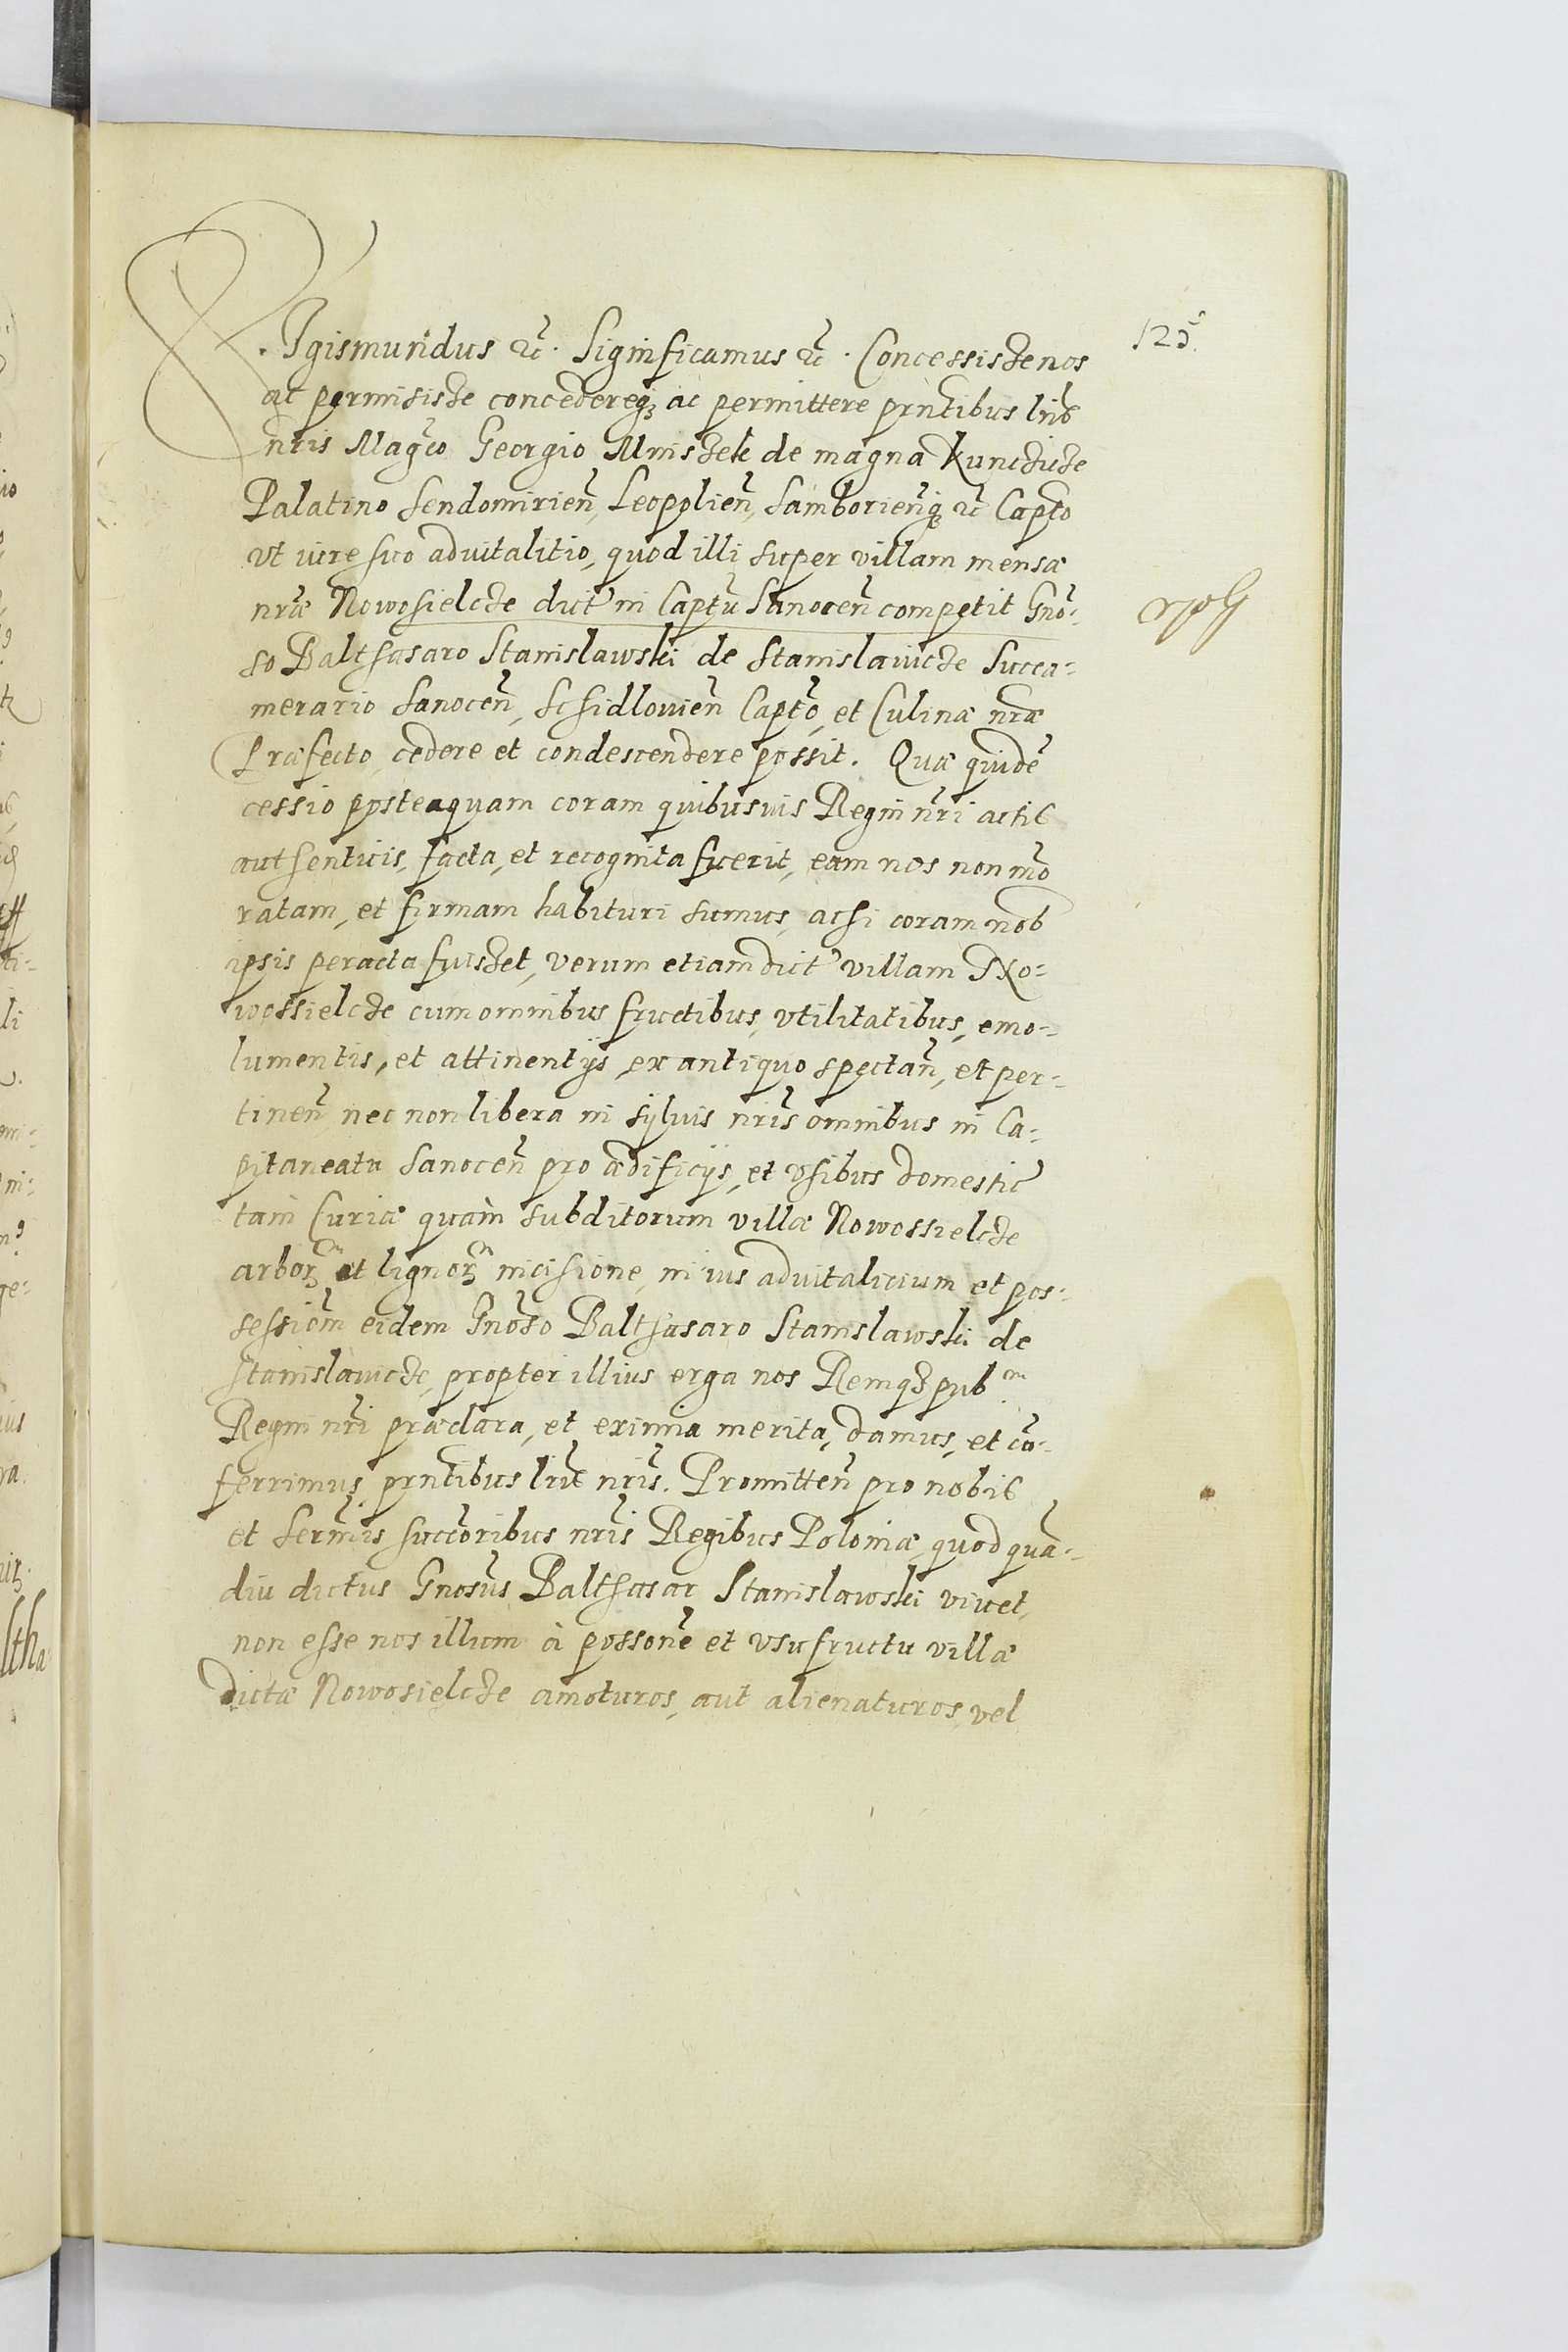 125
SIgismundus etc. Significamus etc. Concessisse nos
ac permisisse concedereq₃ ac permittere pñtibus lris
nris Mag̃co Georgio Mniszek de magna Kunczicze
Palatino Sendomirieñ, Leopolieñ, Samborieñq₃ etc Capto
vt iure suo aduitalitio, quod illi super villam mensæ
nræ Nowosielcze dict' in Captũ Sanoceñ competit Gño-
so Balthasaro Stanislawski de Stanislawicze Succa-
merario Sanoceñ, Schidlouieñ Capto, et Culinæ nræ
Præfecto, cedere et condescendere possit. Quæ quidẽ
cessio posteaquam coram quibusuis Regni nri actis
authenticis, facta, et recognita fuerit, eam nos non mõ
ratam, et firmam habituri sumus, acsi coram nob
ipsis peracta fuisset, verum etiam dict' villam No-
wossielcze cum omnibus fructibus, vtilitatibus, emo-
lumentis, et attinentijs, ex antiquo spectañ, et per-
tineñ nec non libera in syluis nris omnibus in Ca-
pitaneatu Sanoceñ pro ædificijs, et vsibus domestic'
tam Curiæ quàm subditorum villæ Nowossielcze
arborꝝ et lignorꝝ incisione, in ius aduitalicium et pos-
sessiom̃ eidem Gnoso Balthasaro Stanislawski de
Stanislawicze, propter illius erga nos Remq₃ pub^cam
Regni nri præclara, et eximia merita, damus, et cõ-
ferrimus pñtibus lris nris. Promitteñ pro nobis
et Sermis succoribus nris Regibus Poloniæ, quod quã-
diu dictus Gnosus Balthasar Stanislawski viuet,
non esse nos illum à possone et vsufructu villæ
dictæ Nowosielcze amoturos, aut alienaturos, vel